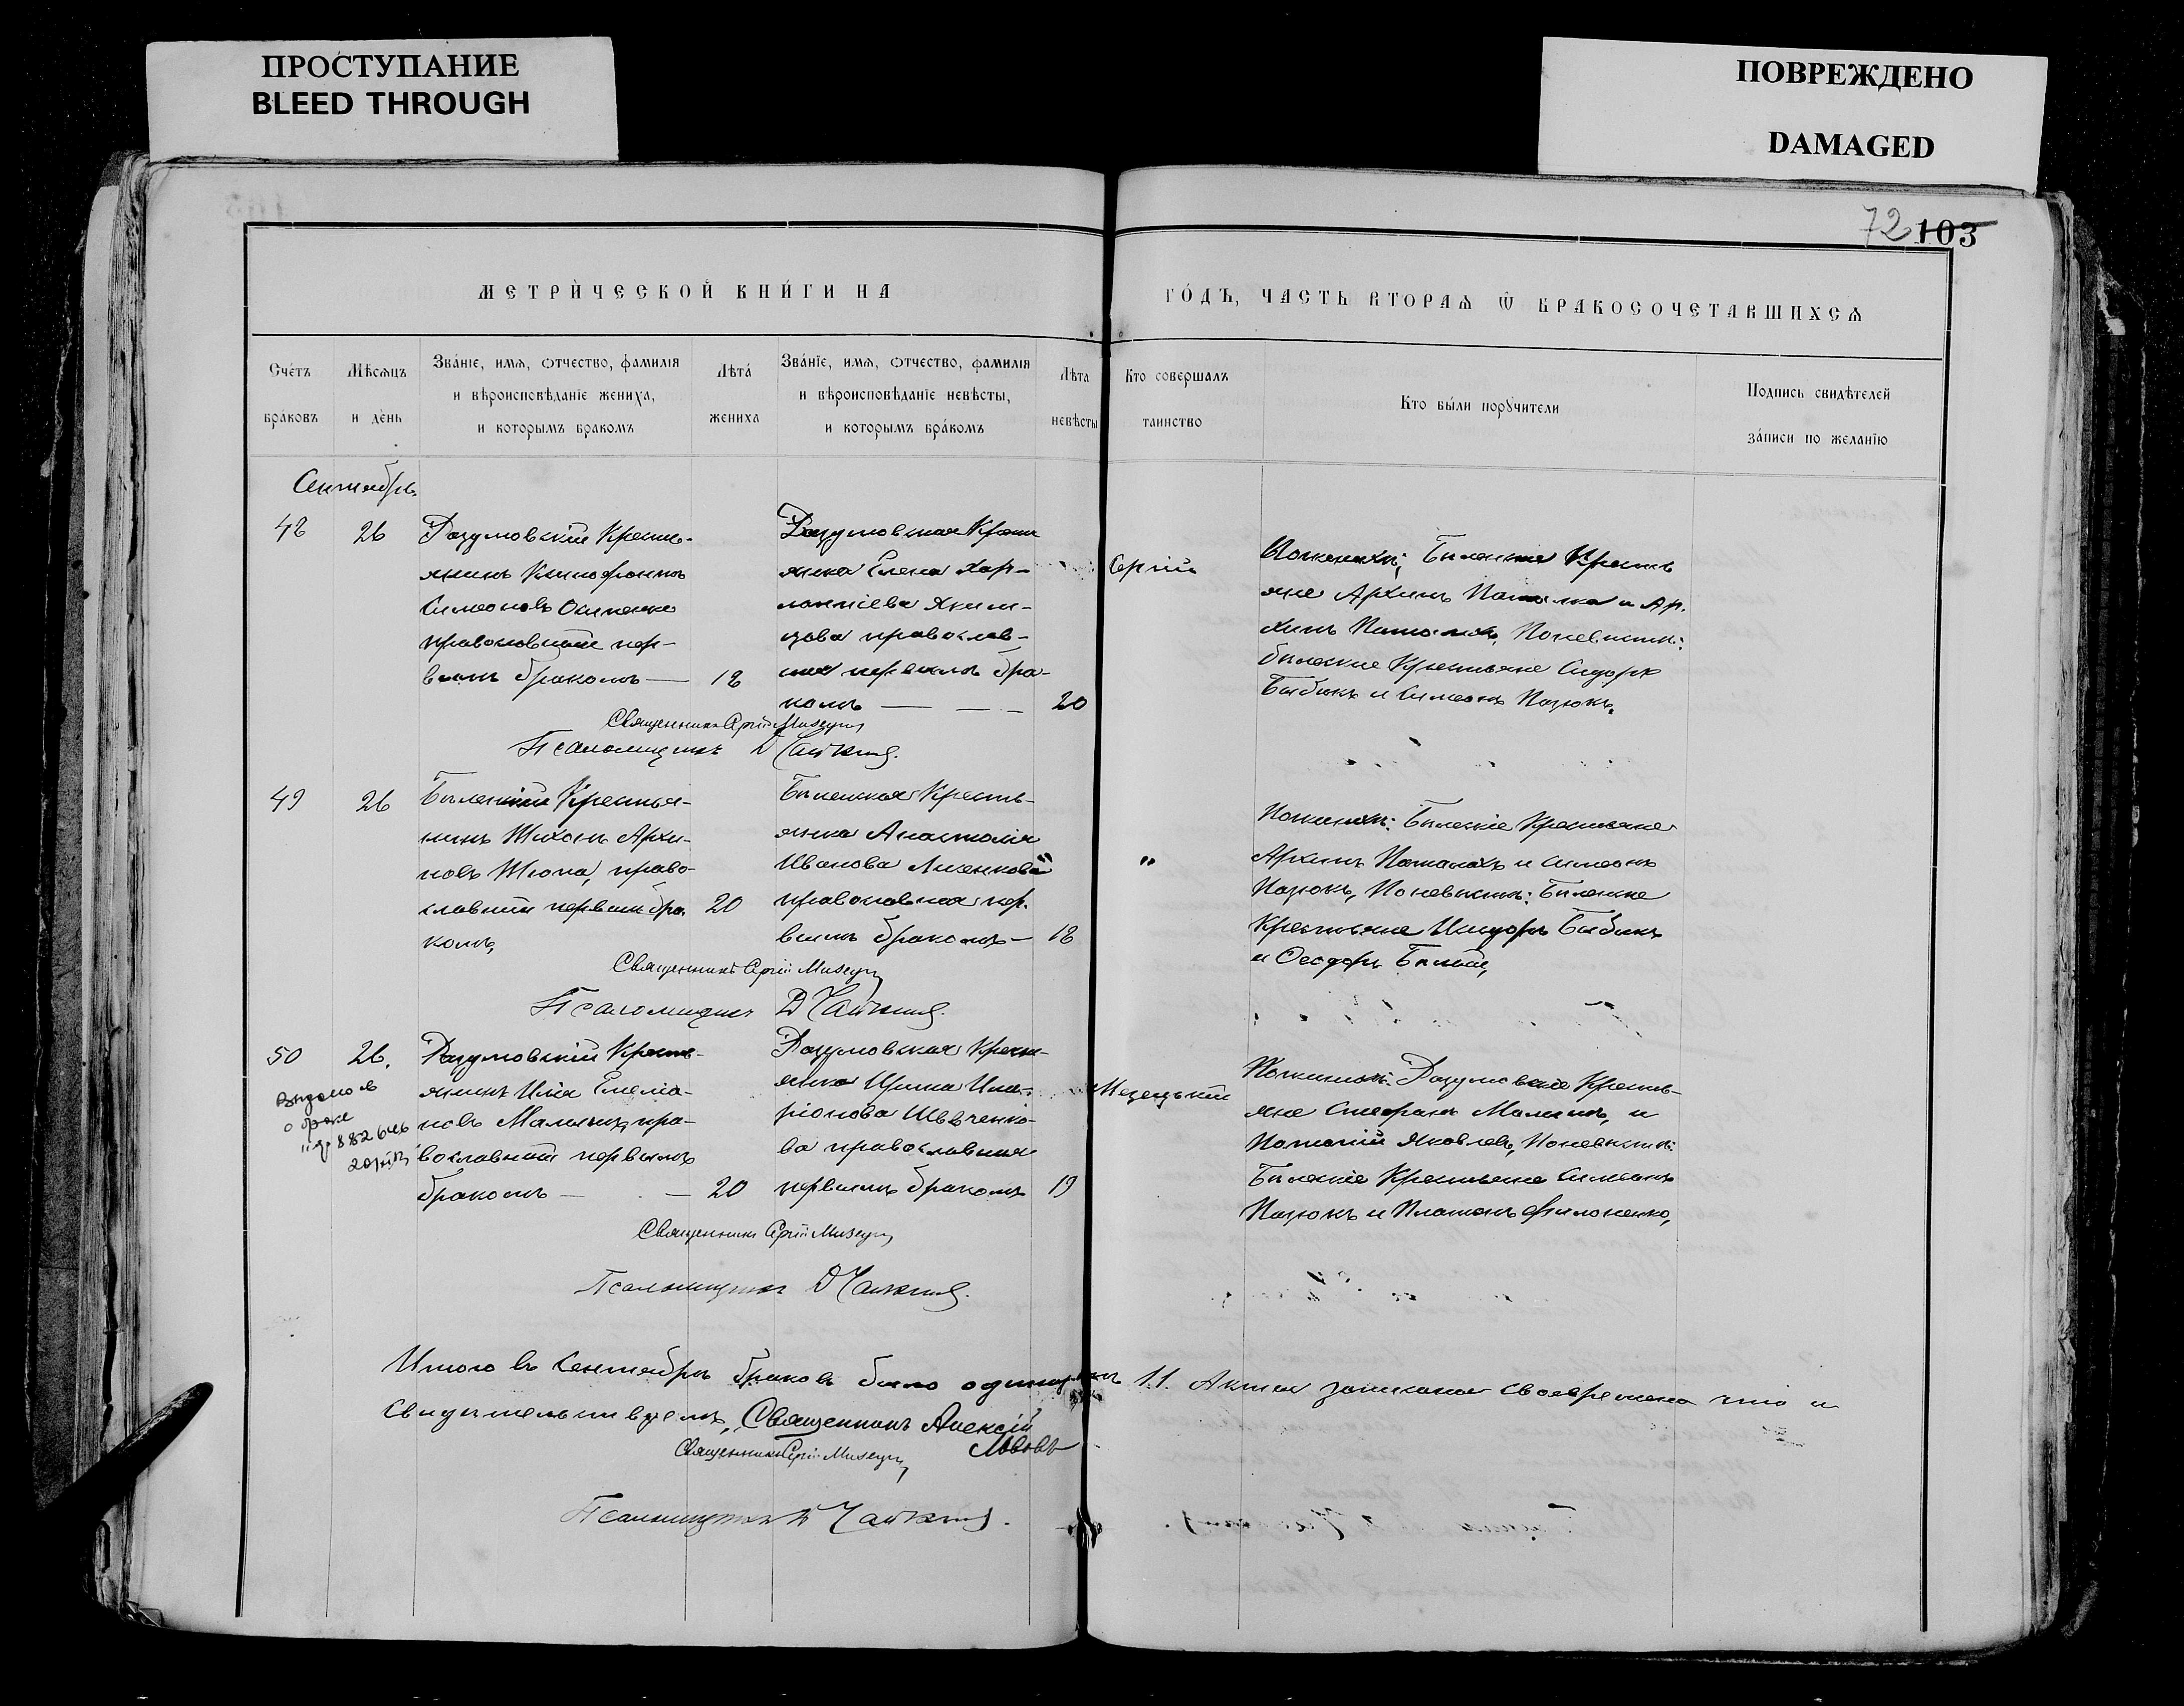 ПРОСТУПАНИЕ
BLEED THROUGH
ПОВРЕЖДЕНО
DAMAGED
72 103
МЕТРИ́ЧЕСКОЙ КНИ́ГИ НА
ГО́ДЪ, ЧАСТЬ ВТОРАѦ Ѡ҆ БРАКОСОЧЕТАВШИХСѦ
Сче́тъ бра́ковъ
Мѣсѧцъ и де́нь
Зва́нїе, имѧ, ѻтчество, фамилїѧ и вѣроисповѣданїе жениха, и которымъ бракомъ
Лѣта́ жениха
Зва́нїе, имѧ, ѻтчество, фамилїѧ и вѣроисповѣданїе невѣсты, и которымъ бра́комъ
Лѣта невѣсты
Кто совершалъ таинство
Кто бы́ли порꙋчители
Подпись свидѣтелей за́писи по желанїю
Сентябрь.
48
26
Разумовскій Кресть-
янинъ Ксенофонтъ
Симеоновъ
православный пер-
вымъ бракомъ —
18
Разумовская Кресть
янка Елена Хар-
лампіева Яким-
цова православ-
ная первымъ бра-
комъ — — —
20
Сергій
Поженихѣ: Быленкіе Кресть
яне Архипъ и Ар.
хипъ Поневѣстѣ:
быленкіе Крестьяне Сидоръ
Бабикъ и Симеонъ Пазюкъ.
Священникъ Сергій Мизецкій
Псаломщикъ Д Чайкинъ.
49
26
Быленкій Крестья-
нинъ Тихонъ Архи-
повъ Тюпа, право-
славный первымъ бра.
комъ,
20
Быленкая Кресть-
янка Анастасія
Иванова Лысенкова
православная пер.
вымъ бракомъ —
18
"
Поженихѣ: Быленкіе Крестьяне
Архипъ и Симеонъ
Пазюкъ, Поневѣстѣ: Быленкіе
Крестьяне Исидоръ Бабикъ
и Ѳеодоръ Бѣлый,
Священникъ Сергій Мизецкій
Псаломщикъ Д Чайкинъ.
50
26.
Разумовскій Кресть-
янинъ Илія Емелiа-
новъ Малышъ, пра-
вославный первымъ
бракомъ — —
20
Разумовская Кресть-
янка Ирина Ила-
ріонова Шевченко-
ва православная
первымъ бракомъ
19
Мизецький
Поженихѣ: Разумовскіе Кресть-
яне Стефанъ Малышъ, и
Потапій Яковлевъ, Поневѣстѣ:
Быленкіе Крестьяне Симеонъ
Пазюкъ и Платонъ Филоненко,
Священникъ Сергій Мизецкій
Псаломщикъ Д Чайкинъ.
Итого въ Сентябрѣ браковъ было одинадцать 11. Актыи записаны своевремено что и
свидѣтельствуемъ, Священникъ Алексій
Львовъ
Священникъ Сергій Мизецкій
Псаломщикъ Д Чайкинъ.